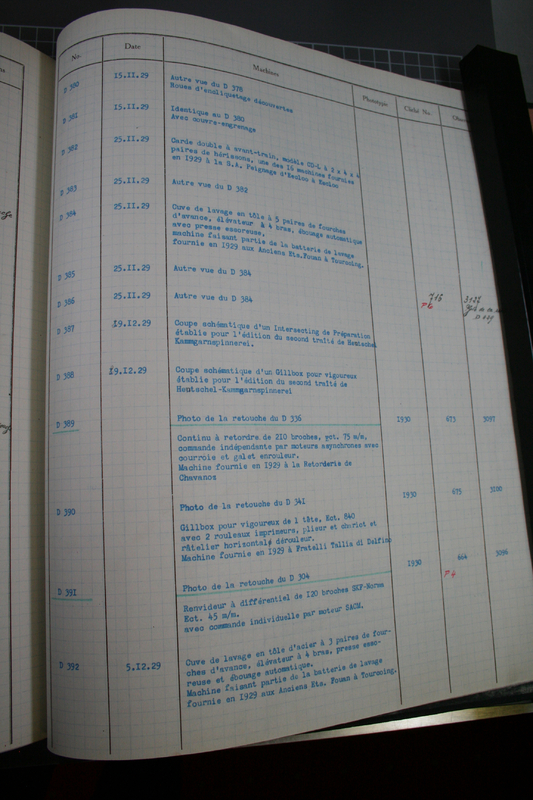 No. Date Machines Phototypie Cliché No.
D 380 15.II.29 Autre vue du D 378
Roues d'encliquetage découvertes
D 381 15.II.29 Identique au D 380
Avec couvre-engrenage
D 382 25.II.29 Carde double à avant-train, modèle
paires de hérissons, une des 16 machines fournies
en 1929 à la S.A. Peignage d'Eecloo à Eecloo
D 383 25.II.29 Autre vue du D 382
D 384 25.II.29 Cuve de lavage en tôle à 5 paires de fourches
d'avance, élévateur à 4 bras, ébouage automatique
avec presse essoreuse,
machine faisant partie de la batterie de lavage
fournie en I929 aux Anciens Ets.Fouan à Tourcoing.
D 385 25.II.29 Autre vue du D 384
D 386 25.II.29 Autre vue du D 384
D 387 19.I2.29 Coupe schématique d'un Intersecting de Préparation
établie pour l'édition du second traité de Hentschel
Kammgarnspinnerei.
D 388 19.I2.29 Coupe schématique d'un Gillbox pour vigoureux
établie pour l'édition du second traité de
Hentschel-Kammgarnspinnerei
D 389 Photo de la retouche du D 336 I930 673 3097
Continu à retordre de 2I0 broches, ect. 75 m/m,
commande indépendante par moteurs asynchrones avec
courroie et galet enrouleur.
Machine fournie en I929 à la Retorderie de
Chavanoz
D 390 Photo de la retouche du D 34I I930 675 3I00
Gillbox pour vigoureux de I tête, Ect. 840
avec 2 rouleaux imprimeurs, plieur et chariot et
râtelier horizontals dérouleur.
Machine fournie en I929 à Fratelli Tallia di Delfino
D 391 Photo de la retouche du D 304 I930 664 3096
P4
Renvideur à différentiel de I20 broches SKF-Norma
Ect. 45 m/m.
avec commande individuelle par moteur SACM.
D 392 5.I2.29 Cuve de lavage en tôle d'acier à 3 paires de four-
ches d'avance, élévateur à 4 bras, presse esso-
reuse et ébouage automatique.
Machine faisant partie de la batterie de lavage
fournie en I929 aux Anciens Ets. Fouan à Tourcoing.